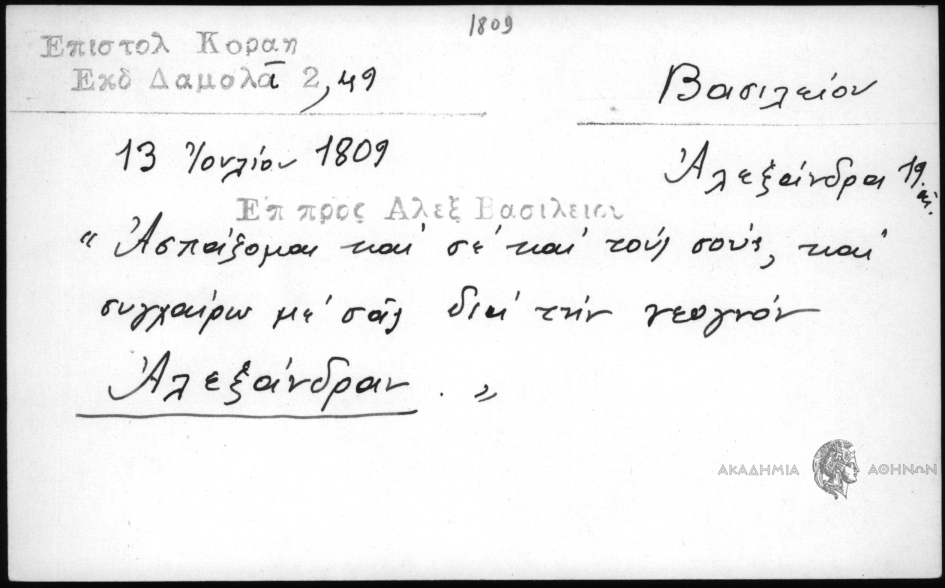 1809
Επιστολ Κοραη
Εκδ Δαμαλᾶ 2,49
Βασιλείου
13 Ἰουλίου 1809
Ἀλεξάνδρα 19. αἰ.
Επ προς Αλεξ Βασιλειου
“ Ἀσπάζομαι καὶ σὲ καὶ τοὺς σούς, καὶ
συγχαίρω μὲ σᾶς διὰ τὴν νεογνὸν
Ἀλεξάνδραν . ”
ΑΚΑΔΗΜΙΑ ΑΘΗΝΩΝ